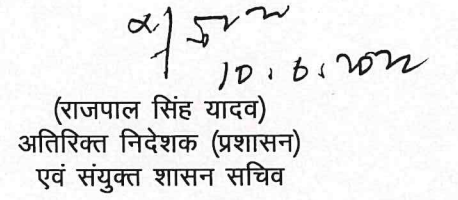 10.6.2022
(राजपाल सिंह यादव)
अतिरिक्त निदेशक (प्रशासन)
एवं संयुक्त शासन सचिव